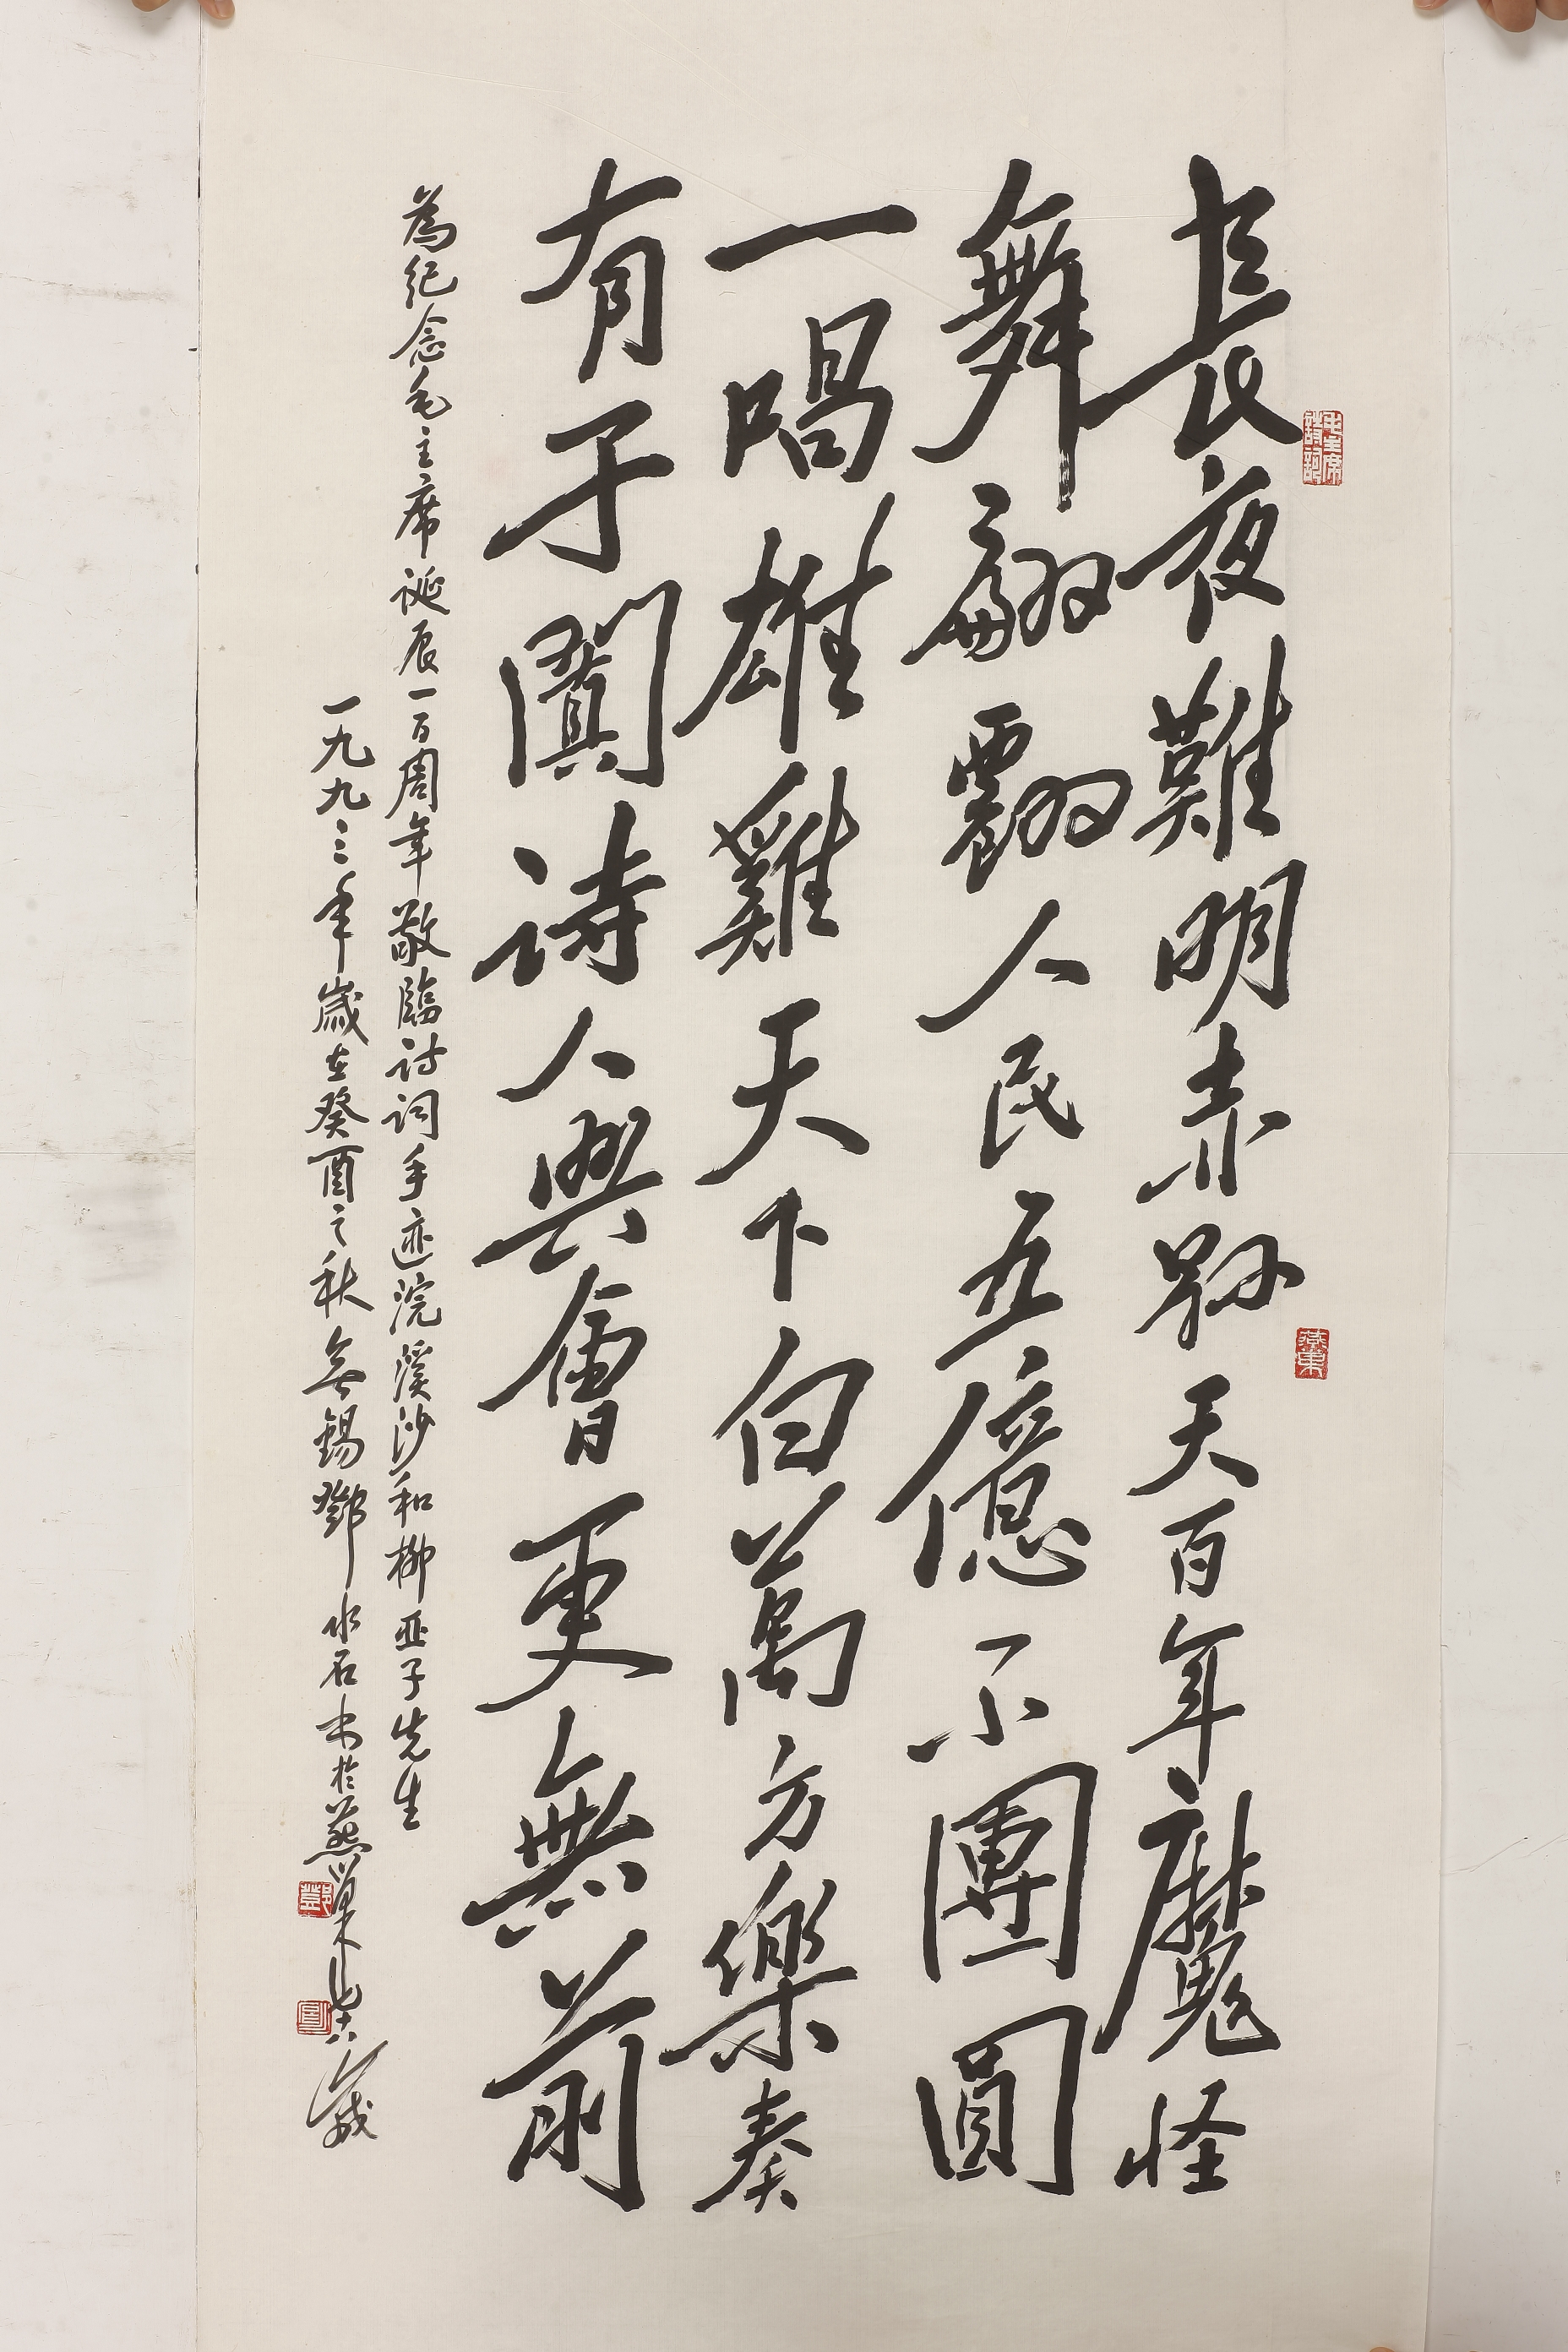 長夜難明赤縣天百年魔怪
舞翩躚人民五億不團圓
一唱雄雞天下白萬方樂奏
有于闐詩人興會更無前
為纪念毛主席诞辰一百周年敬臨詩词手迹浣溪沙和柳亚子先生
一九九三年歲在癸酉之秋無錫鄧水石书於燕巢七十六歲
毛主席詩詞
燕巢
鄧